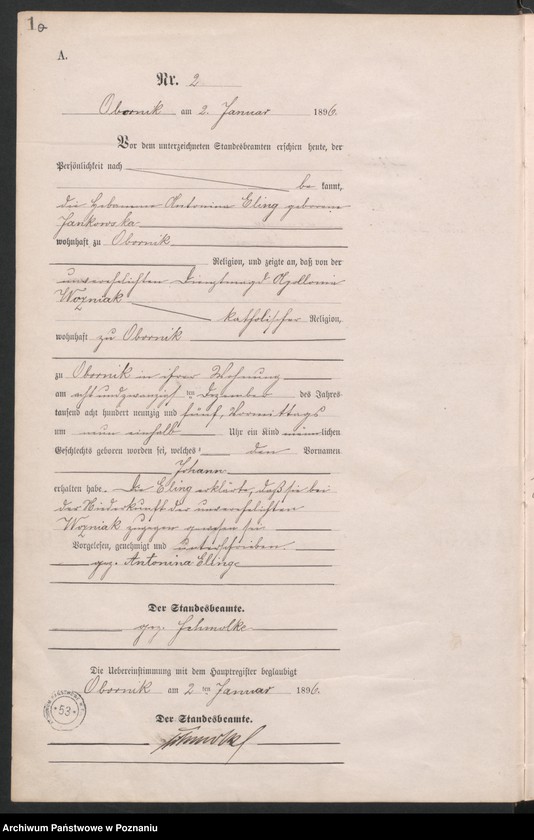 1a
A.
Nr. 2
Obornik am 2. Januar 1896.
Vor dem unterzeichneten Standesbeamten erschien heute, der
Persönlichkeit nach
be kannt,
die Hebamme Antonina Eling geborene
Jankowska
wohnhaft zu Obornik
Religion, und zeigte an, daß von der
unverehelichten Dienstmagd Apollonia
Wozniak katholischer Religion,
wohnhaft zu Obornik
zu Obornik in ihrer Wohnung
am acht und zwanzigsten Dezember des Jahres
tausend acht hundert neunzig und fünf, Vormittags
um neun einhalb Uhr ein Kind männlichen
Geschlechts geboren worden sei, welches den Vornamen
Johann
erhalten habe. Die Eling erklärte, daß sie bei
der Niederkunft der unverehelichten
Wozniak zugegen gewesen sei
Vorgelesen, genehmigt und unterschrieben.
gez. Antonina Eling
Der Standesbeamte.
gez. Schmolke
Die Uebereinstimmung mit dem Hauptregister beglaubigt
Obornik am 2 ten Januar 1896.
Der Standesbeamte.
Schmolke
*53*
Archiwum Państwowe w Poznaniu